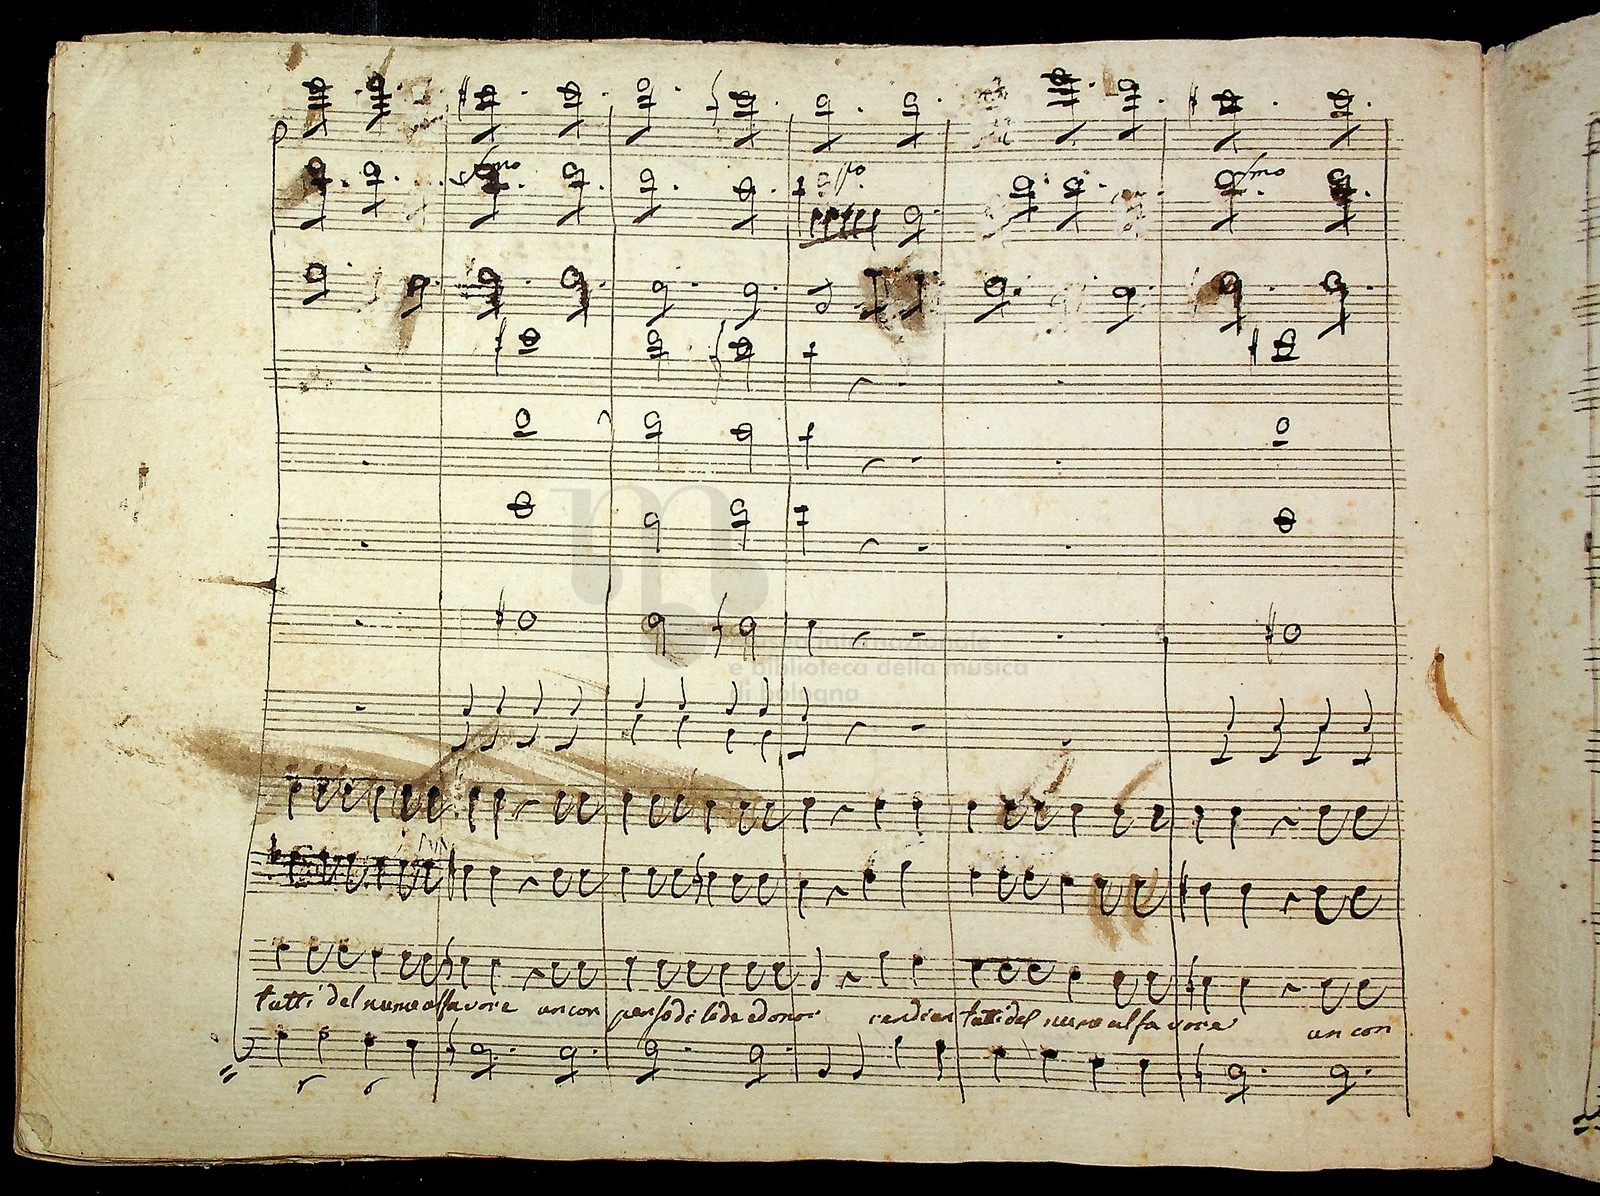 fmo
po
fmo
museo internazionale
e biblioteca della musica
di bologna
tutti del nume al favore un con penso di lode ed onor rendian tutti del nume al favore un con